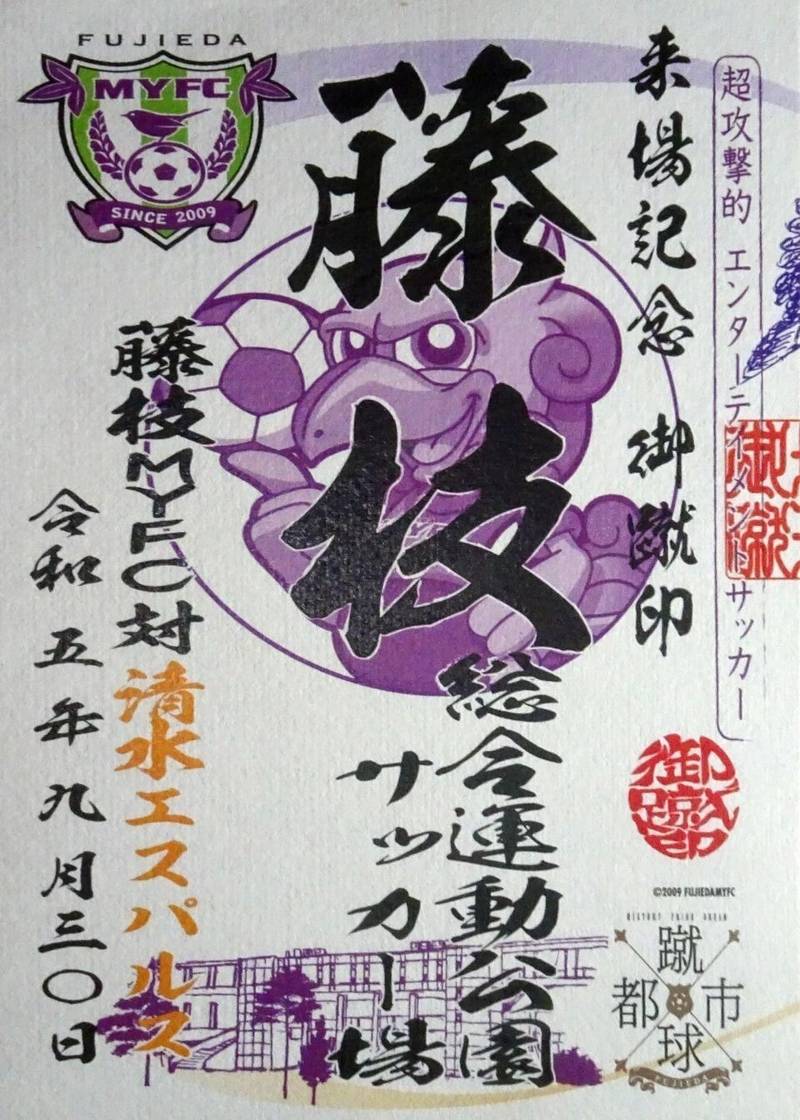 超攻撃的 エンターテイメントサッカー
来場記念 御蹴印
藤枝
総合運動公園
サッカー場
藤枝MYFC対清水エスパルス
令和五年九月三〇日
FUJIEDA
MYFC
SINCE 2009
御蹴印
©2009 FUJIEDAMYFC
蹴球都市
FUJIEDA